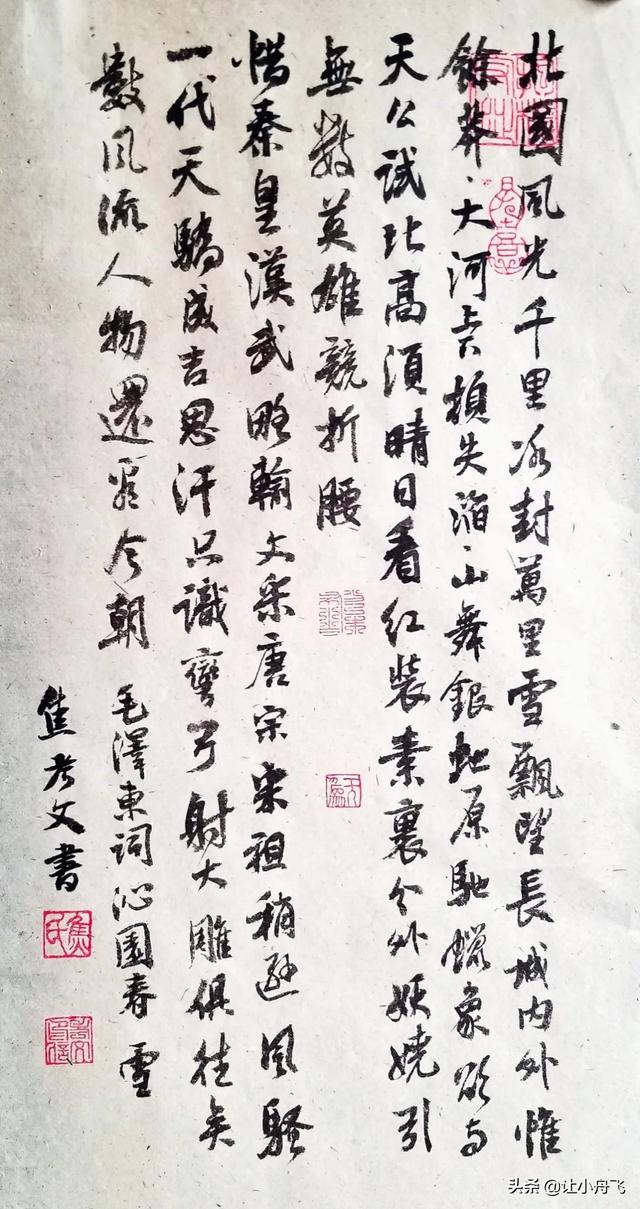 北國風光千里冰封萬里雪飄望長城内外惟
餘莽、大河上下頓失滔、山舞銀蛇原馳蠟象欲与
天公試比高須晴日看紅裝素裹分外妖嬈引
無數英雄競折腰
惜秦皇漢武略輸文采唐宗宋祖稍遜風騷
一代天驕成吉思汗只識彎弓射大雕俱往矣
數風流人物還看今朝 毛澤東詞沁園春 雪
焦考文書
焦氏
头条 @让小舟飞